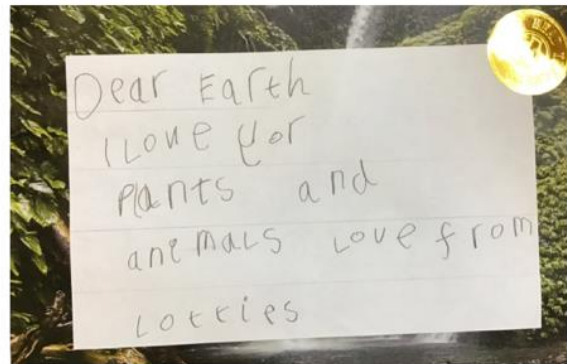 Dear Earth
I Love yor
Plants and
anemals Love from
Lotties